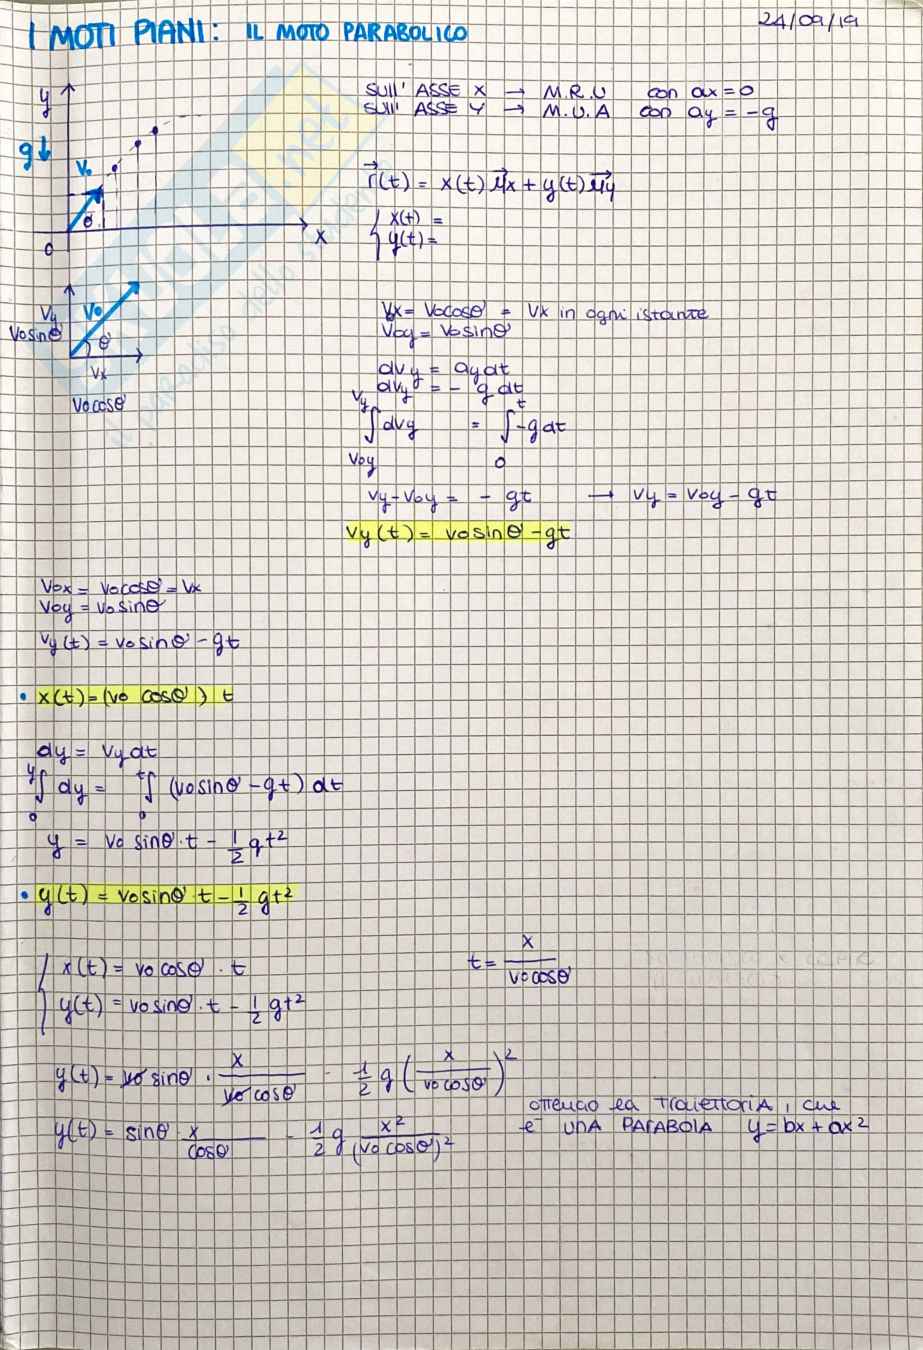 24/09/19
I MOTI PIANI: IL MOTO PARABOLICO
y
g↓
V₀
θ
O
x
SULL' ASSE X → M.R.U con ax = 0
SULL' ASSE Y → M.U.A con ay = -g
r(t) = x(t) μx + y(t) μy
x(t) =
y(t) =
Vy
V₀
V₀sinθ
θ
Vx
V₀cosθ
Vx = V₀cosθ = Vx in ogni istante
V₀y = V₀sinθ
dvy = ay dt
dvy = - g dt
∫ dvy = ∫ -g dt
Vy
V₀y
t
0
Vy - V₀y = - gt → Vy = V₀y - gt
Vy(t) = V₀sinθ - gt
V₀x = V₀cosθ = Vx
V₀y = V₀sinθ
Vy(t) = V₀sinθ - gt
• x(t) = (V₀ cosθ) t
dy = Vy dt
y
0
∫ dy = ∫ (V₀sinθ - gt) dt
t
0
y = V₀ sinθ · t - 1/2 gt²
• y(t) = V₀sinθ t - 1/2 gt²
x(t) = V₀cosθ · t
t = x / V₀cosθ
y(t) = V₀sinθ · t - 1/2 gt²
y(t) = V₀ sinθ · x / V₀cosθ - 1/2 g (x / V₀cosθ)²
y(t) = sinθ · x / cosθ - 1/2 g x² / (V₀cosθ)²
ottengo la TRAIETTORIA, che
è UNA PARABOLA y = bx + ax²
il paradiso dello studente
.net